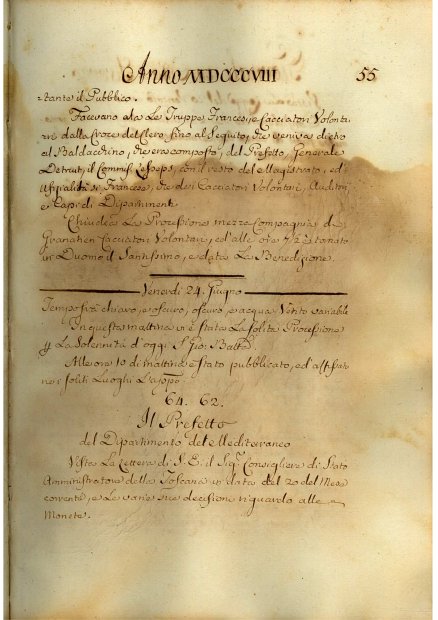 Anno MDCCCVIII 55
stante il Pubblico.
Facevano ala Le Truppe Francesi, e Cacciatori Volonta
rri dalla Croce del Clero fino al Seguito, che veniva dietro
al Baldacchino, che era composto, del Prefetto, Generale
il Commiss. Lesseps, con il resto del Magistrato, ed
Uffizialità sì Francese, che dei Cacciatori Volontari, Auditori
e Capi di Dipartimenti
Chiudea La Processione mezza Compagnia di
Granatieri Cacciatori Volontari, ed alle ore 7 1/2 è tornato
in Duomo il Santissimo, e data La Benedizione.
Venerdì 24. Giugno
Tempo stà chiaro, e scuro, oscuro, e acqua Vento variabile
In questa mattina vi è stata La Solita Processione
p La Solennità d'oggi S. Gio: Batta
Alle ore 10 di mattina è stato pubblicato, ed affissato
nei soliti Luoghi L'appo
64. 62.
Il Prefetto
del Dipartimento del Mediterraneo
Vista La Lettera di S. E. il Sigr Consigliere di Stato
Amministratore della Toscana in data del 20 del Mese
corrente, e Le varie sue decisioni riguardo alle
Monete.